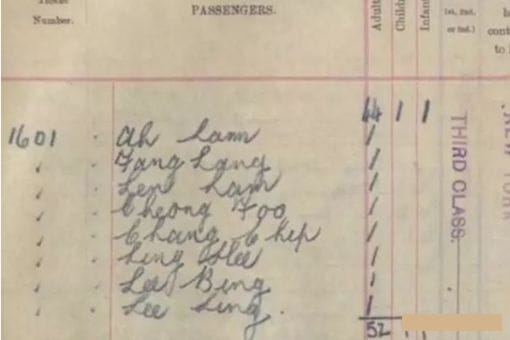 Ticket Number. PASSENGERS. Adults Child Infant 1st, 2nd, or 3rd.
44 1 1
1601 Ah Lam 1
✓ Fang Lang 1
✓ Len Lam 1
✓ Cheong Foo 1
✓ Chang Chip 1
✓ Ling Hee 1
✓ Lee Bing 1
✓ Lee Ling. 1
52
THIRD CLASS.
NEW YORK